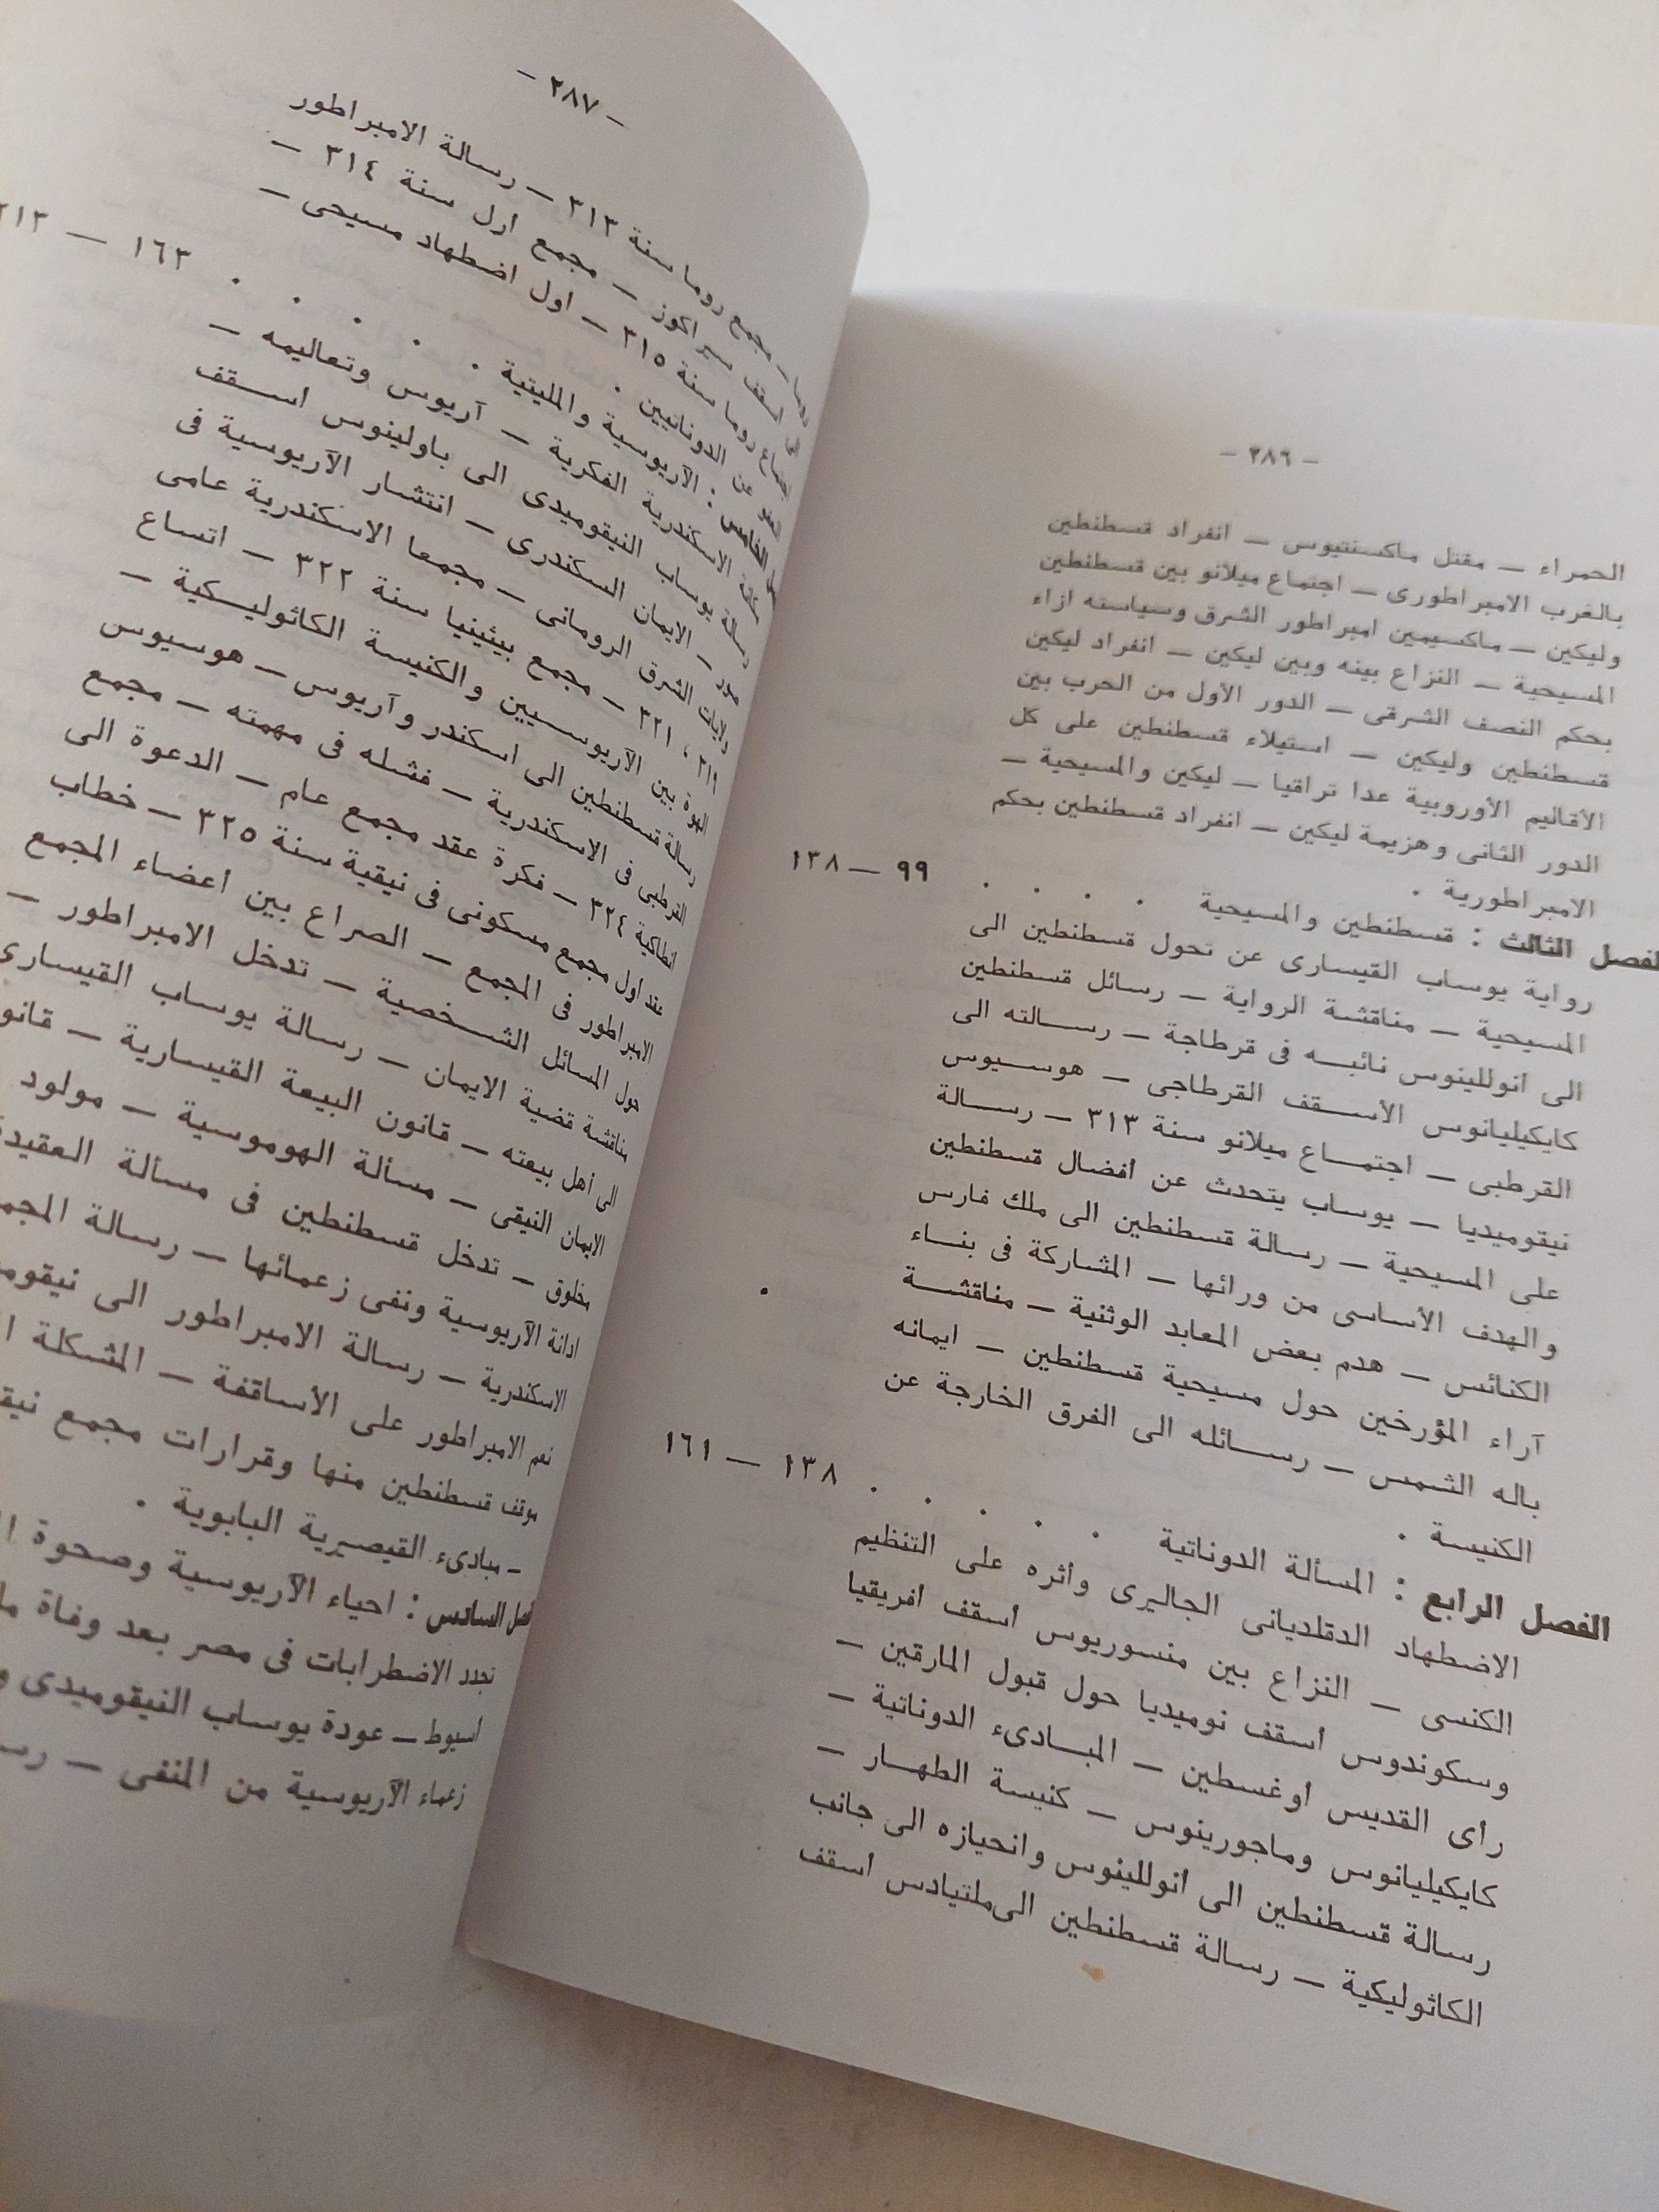 - ٢٨٦ -
الحمراء — مقتل ماكسنتيوس — انفراد قسطنطين
بالغرب الامبراطورى — اجتماع ميلانو بين قسطنطين
وليكين — ماكسيمين امبراطور الشرق وسياسته ازاء
المسيحية — النزاع بينه وبين ليكين — انفراد ليكين
بحكم النصف الشرقى — الدور الأول من الحرب بين
قسطنطين وليكين — استيلاء قسطنطين على كل
الأقاليم الأوروبية عدا تراقيا — ليكين والمسيحية —
الدور الثانى وهزيمة ليكين — انفراد قسطنطين بحكم
الامبراطورية .
لفصل الثالث : قسطنطين والمسيحية . . . . ٩٩ — ١٣٨
رواية يوساب القيسارى عن تحول قسطنطين الى
المسيحية — مناقشة الرواية — رسائل قسطنطين
الى أنوللينوس نائبه فى قرطاجة — رسالته الى
كايكيليانوس الأسقف القرطاجى — هوسيوس
القرطبى — اجتماع ميلانو سنة ٣١٣ — رسالة
نيقوميديا — يوساب يتحدث عن أفضال قسطنطين
على المسيحية — رسالة قسطنطين الى ملك فارس
والهدف الأساسى من ورائها — المشاركة فى بناء
الكنائس — هدم بعض المعابد الوثنية — مناقشة
آراء المؤرخين حول مسيحية قسطنطين — ايمانه
باله الشمس — رسائله الى الفرق الخارجة عن
الكنيسة .
الفصل الرابع : المسألة الدوناتية . . . . . ١٣٨ — ١٦١
الاضطهاد الدقلديانى الجاليرى وأثره على التنظيم
الكنسى — النزاع بين منسوريوس أسقف أفريقيا
وسكوندوس أسقف نوميديا حول قبول المارقين —
رأى القديس أوغسطين — المبادىء الدوناتية —
كايكيليانوس وماجورينوس — كنيسة الطهار —
رسالة قسطنطين الى أنوللينوس وانحيازه الى جانب
الكاثوليكية — رسالة قسطنطين الى ملتيادس أسقف
- ٢٨٧ -
روما — مجمع روما سنة ٣١٣ — رسالة الامبراطور
الى أسقف سيراكوز — مجمع ارل سنة ٣١٤ —
روما سنة ٣١٥ — اول اضطهاد مسيحى —
عن الدوناتيين .
الخامس : الآريوسية والمليتية . . . . . ١٦٣ —
مكانة الاسكندرية الفكرية — آريوس وتعاليمه —
رسالة يوساب النيقوميدى الى باولينوس أسقف
صور — الايمان السكندرى — انتشار الآريوسية فى
ولايات الشرق الرومانى — مجمعا الاسكندرية عامى
٣١٩ ، ٣٢١ — مجمع بيثينيا سنة ٣٢٢ — اتساع
الهوة بين الآريوسيين والكنيسة الكاثوليكية —
رسالة قسطنطين الى اسكندر وآريوس — هوسيوس
القرطبى فى الاسكندرية — فشله فى مهمته — مجمع
انطاكية ٣٢٤ — فكرة عقد مجمع عام — الدعوة الى
عقد أول مجمع مسكونى فى نيقية سنة ٣٢٥ — خطاب
الامبراطور فى المجمع — الصراع بين أعضاء المجمع
حول المسائل الشخصية — تدخل الامبراطور —
مناقشة قضية الايمان — رسالة يوساب القيسارى
الى أهل بيعته — قانون البيعة القيسارية —
الايمان النيقى — مسألة الهوموسية — مولود
مخلوق — تدخل قسطنطين فى مسألة العقيدة
ادانة الآريوسية ونفى زعمائها — رسالة
الاسكندرية — رسالة الامبراطور الى
الامبراطور على الأساقفة — المشكلة
موقف قسطنطين منها وقرارات مجمع
— مبادىء القيصيرية البابوية .
السادس : احياء الآريوسية وصحوة
تجدد الاضطرابات فى مصر بعد وفاة
أسيوط — عودة يوساب النيقوميدى
زعماء الآريوسية من المنفى —